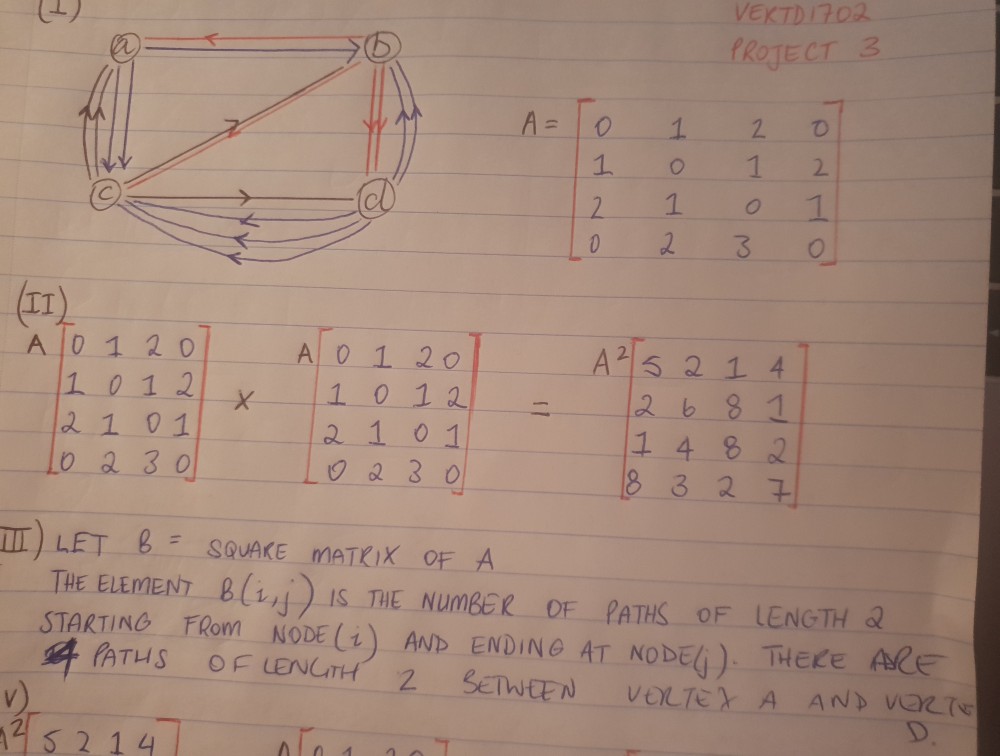 (I)
VEKTD1702
PROJECT 3
a b
c d
A =
0 1 2 0
1 0 1 2
2 1 0 1
0 2 3 0
(II)
A 0 1 2 0 A 0 1 2 0 A² 5 2 1 4
1 0 1 2 X 1 0 1 2 = 2 6 8 1
2 1 0 1 2 1 0 1 1 4 8 2
0 2 3 0 0 2 3 0 8 3 2 7
III) LET B = SQUARE MATRIX OF A
THE ELEMENT B(i,j) IS THE NUMBER OF PATHS OF LENGTH 2
STARTING FROM NODE(i) AND ENDING AT NODE(j). THERE ARE
4 PATHS OF LENGTH 2 BETWEEN VERTEX A AND VERTE
D.
V)
A² 5 2 1 4